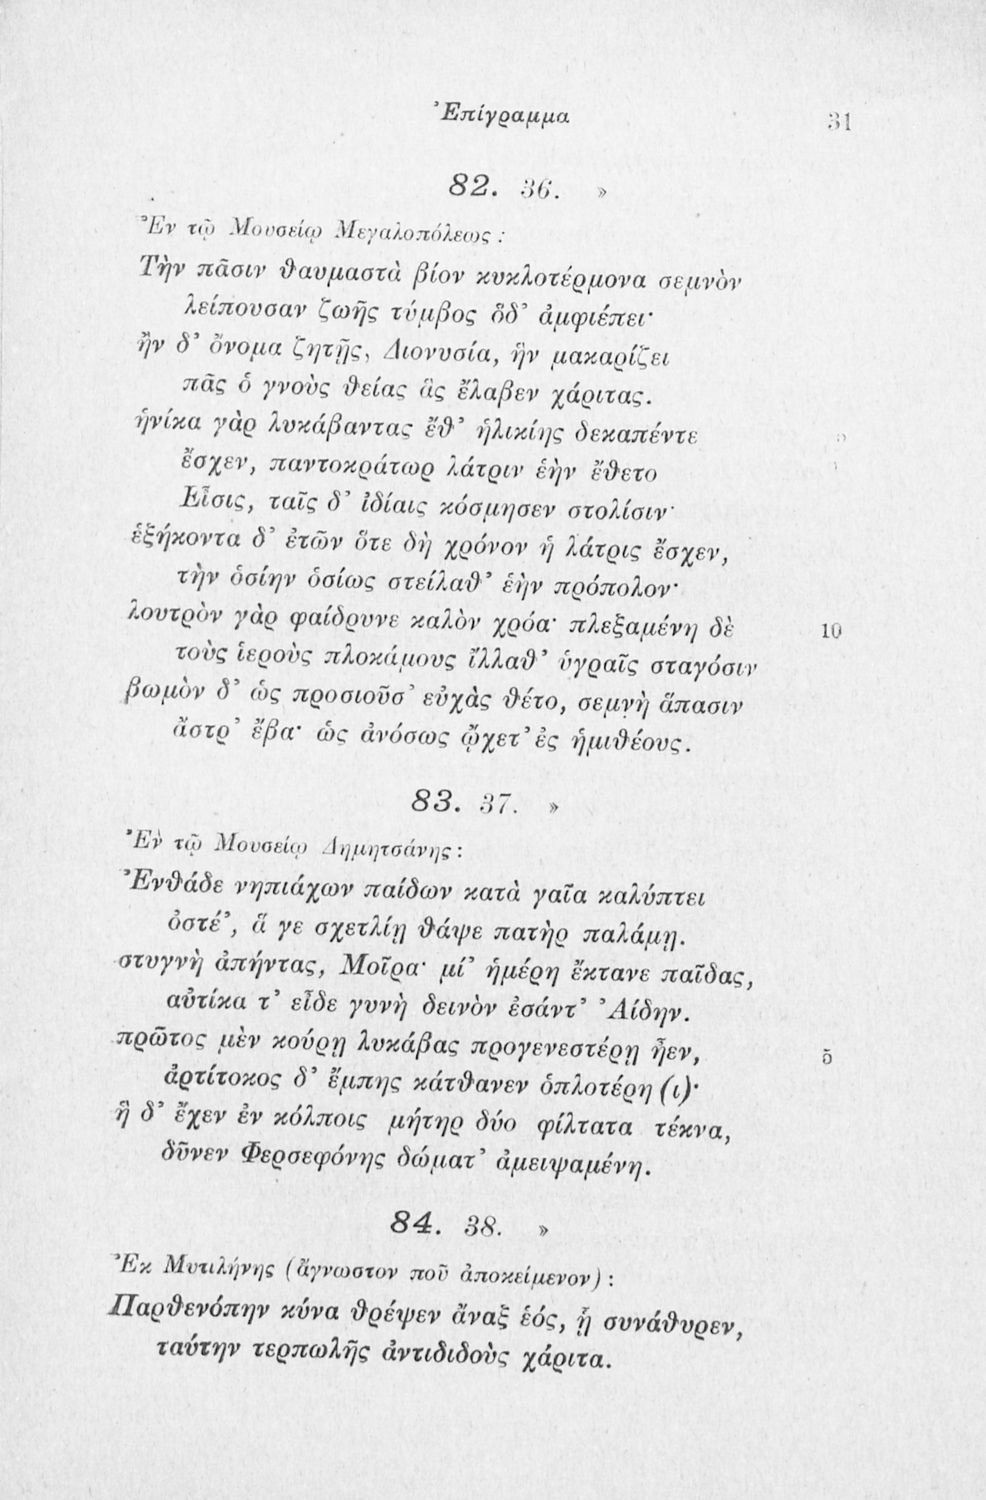 Ἐπίγραμμα 31
82. 36. »
Ἐν τῷ Μουσείῳ Μεγαλοπόλεως :
Τὴν πᾶσιν θαυμαστὰ βίον κυκλοτέρμονα σεμνὸν
λείπουσαν ζωῆς τύμβος ὅδ’ ἀμφιέπει·
ἣν δ’ ὄνομα ζητῇς, Διονυσία, ἣν μακαρίζει
πᾶς ὁ γνοὺς θείας ἃς ἔλαβεν χάριτας.
ἡνίκα γὰρ λυκάβαντας ἔθ’ ἡλικίης δεκαπέντε 5
ἔσχεν, παντοκράτωρ λάτριν ἑὴν ἔθετο
Εἶσις, ταῖς δ’ ἰδίαις κόσμησεν στολίσιν·
ἑξήκοντα δ’ ἐτῶν ὅτε δὴ χρόνον ἡ λάτρις ἔσχεν,
τὴν ὁσίην ὁσίως στείλαθ’ ἑὴν πρόπολον·
λουτρὸν γὰρ φαίδρυνε καλὸν χρόα· πλεξαμένη δὲ 10
τοὺς ἱεροὺς πλοκάμους ἵλλαθ’ ὑγραῖς σταγόσιν
βωμὸν δ’ ὡς προσιοῦσ’ εὐχὰς θέτο, σεμνὴ ἅπασιν
ἄστρ’ ἔβα· ὡς ἀνόσως ᾤχετ’ ἐς ἡμιθέους.
83. 37. »
Ἐν τῷ Μουσείῳ Δημητσάνης :
Ἐνθάδε νηπιάχων παίδων κατὰ γαῖα καλύπτει
ὀστέ’, ἅ γε σχετλίῃ θάψε πατὴρ παλάμῃ.
στυγνὴ ἀπήντας, Μοῖρα· μί’ ἡμέρη ἔκτανε παῖδας,
αὐτίκα τ’ εἶδε γυνὴ δεινὸν ἐσάντ’ Ἀίδην.
πρῶτος μὲν κούρῃ λυκάβας προγενεστέρῃ ἦεν, 5
ἀρτίτοκος δ’ ἔμπης κάτθανεν ὁπλοτέρη (ι)·
ἣ δ’ ἔχεν ἐν κόλποις μήτηρ δύο φίλτατα τέκνα,
δῦνεν Φερσεφόνης δώματ’ ἀμειψαμένη.
84. 38. »
Ἐκ Μυτιλήνης (ἄγνωστον ποῦ ἀποκείμενον) :
Παρθενόπην κύνα θρέψεν ἄναξ ἑός, ᾗ συνάθυρεν,
ταύτην τερπωλῆς ἀντιδιδοὺς χάριτα.